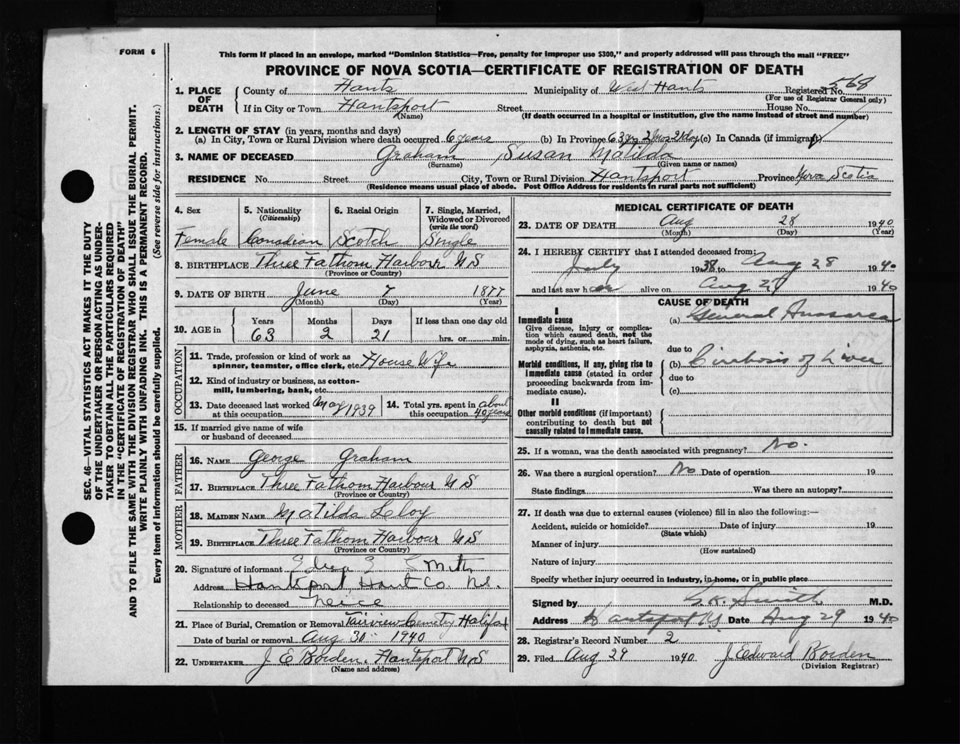 FORM 6
This form if placed in an envelope, marked "Dominion Statistics—Free, penalty for improper use $300," and properly addressed will pass through the mail "FREE"
PROVINCE OF NOVA SCOTIA—CERTIFICATE OF REGISTRATION OF DEATH
1. PLACE OF DEATH County of Hants Municipality of West Hants Registered No. 568
(For use of Registrar General only)
If in City or Town Hantsport Street House No.
(Name) (If death occurred in a hospital or institution, give the name instead of street and number)
2. LENGTH OF STAY (in years, months and days)
(a) In City, Town or Rural Division where death occurred 6 years (b) In Province 63 yrs 2 mos 21 day (c) In Canada (if immigrant)
3. NAME OF DECEASED Graham Susan Matilda
(Surname) (Given name or names)
RESIDENCE No. Street City, Town or Rural Division Hantsport Province Nova Scotia
(Residence means usual place of abode. Post Office Address for residents in rural parts not sufficient)
4. Sex 5. Nationality (Citizenship) 6. Racial Origin 7. Single, Married, Widowed or Divorced (write the word)
Female Canadian Scotch Single
8. BIRTHPLACE Three Fathom Harbour N S
(Province or Country)
9. DATE OF BIRTH June 7 1877
(Month) (Day) (Year)
10. AGE in Years Months Days If less than one day old
63 2 21 hrs. or min.
OCCUPATION
11. Trade, profession or kind of work as spinner, teamster, office clerk, etc. House Wife
12. Kind of industry or business, as cotton-mill, lumbering, bank, etc.
13. Date deceased last worked at this occupation May 1939 14. Total yrs. spent in this occupation about 40 years
15. If married give name of wife or husband of deceased
FATHER
16. Name George Graham
17. Birthplace Three Fathom Harbour N S
(Province or Country)
MOTHER
18. Maiden Name Matilda Leloy
19. Birthplace Three Fathom Harbour N S
(Province or Country)
20. Signature of informant Smith
Address Hantsport, Hant Co. N.S.
Relationship to deceased neice
21. Place of Burial, Cremation or Removal Fairview Cemetry Halifax
Date of burial or removal Aug 31 1940
22. Undertaker J E Borden. Hantsport N S
(Name and address)
MEDICAL CERTIFICATE OF DEATH
23. DATE OF DEATH Aug 28 1940
(Month) (Day) (Year)
24. I HEREBY CERTIFY that I attended deceased from:
July 1938 to Aug 28 1940
and last saw her alive on Aug 1940
CAUSE OF DEATH
I
Immediate cause
Give disease, injury or complication which caused death, not the mode of dying, such as heart failure, asphyxia, asthenia, etc.
(a) General Anasarca
due to
Morbid conditions, if any, giving rise to immediate cause (stated in order proceeding backwards from immediate cause).
(b) Cirrhosis of Liver
due to
(c)
II
Other morbid conditions (if important) contributing to death but not causally related to immediate cause.
25. If a woman, was the death associated with pregnancy? No.
26. Was there a surgical operation? No Date of operation 19
State findings Was there an autopsy?
27. If death was due to external causes (violence) fill in also the following:—
Accident, suicide or homicide? Date of injury 19
(State which)
Manner of injury
(How sustained)
Nature of injury
Specify whether injury occurred in industry, in home, or in public place
Signed by Smith M.D.
Address Hantsport N.S. Date Aug 29 1940
28. Registrar's Record Number 2
29. Filed Aug 29 1940 J. Edward Borden
(Division Registrar)
SEC. 46—VITAL STATISTICS ACT MAKES IT THE DUTY
OF THE UNDERTAKER OR PERSON ACTING AS UNDER-
TAKER TO OBTAIN ALL THE PARTICULARS REQUIRED
IN THE "CERTIFICATE OF DEATH"
AND TO FILE THE SAME WITH THE DIVISION REGISTRAR WHO SHALL ISSUE THE BURIAL PERMIT.
WRITE PLAINLY WITH UNFADING INK. THIS IS A PERMANENT RECORD.
Every item of information should be carefully supplied. (See reverse side for instructions.)